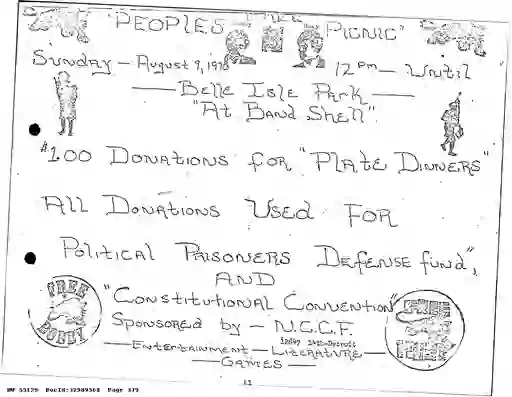 "PEOPLES PICNIC"
Sunday - August 9, 1970
12 PM - Until
Belle Isle Park
"At Band Shell"
$1.00 Donations for "Plate Dinners"
All Donations Used For
Political Prisoners Defense fund",
AND
"Constitutional Convention"
Sponsored by - N.C.C.F.
- Entertainment - Literature -
- GAMES -
FREE
BOBBY
11
NW 55129 DocId:32989568 Page 379